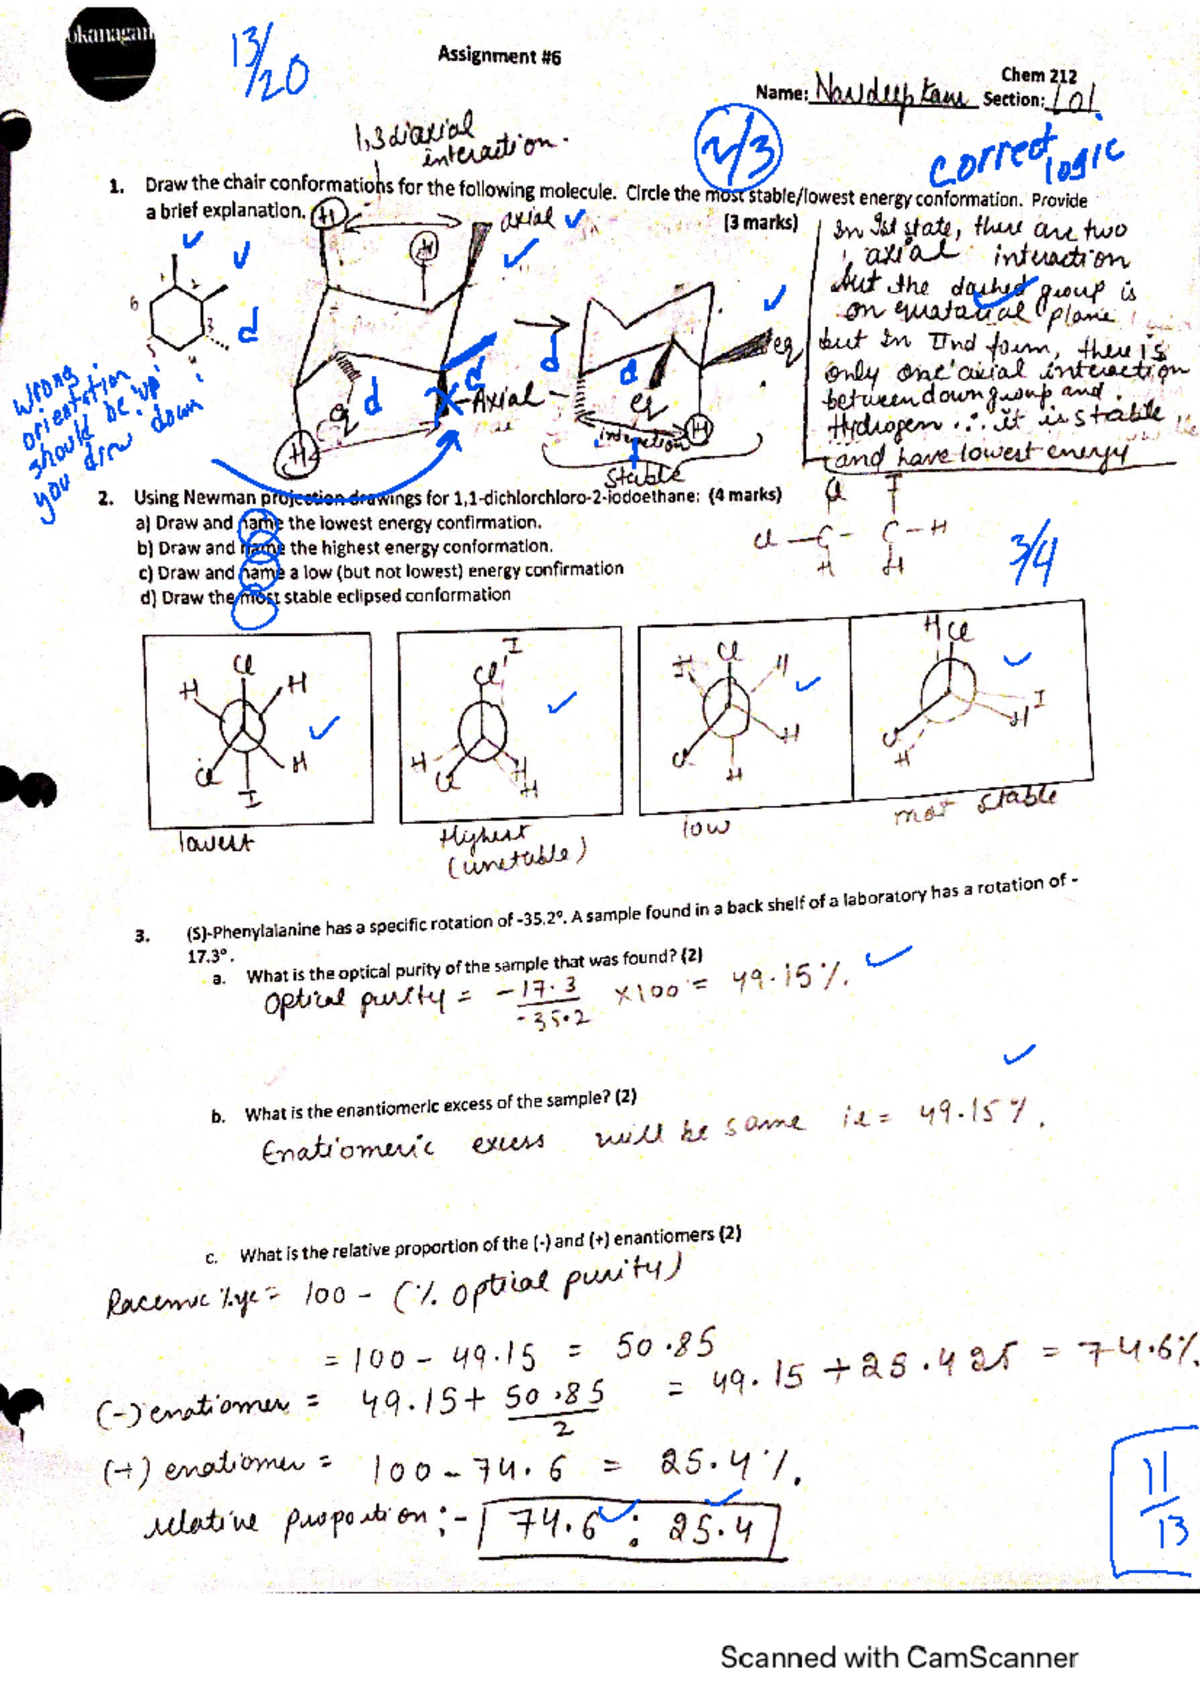 okanagan
13/20
Assignment #6
Chem 212
Name: Navdeep Kaur Section: 101
1,3 diaxial
interaction.
2/3
correct logic
1. Draw the chair conformations for the following molecule. Circle the most stable/lowest energy conformation. Provide
a brief explanation.
(3 marks)
H
axial
H
6
3
d
wrong
orientation
should be 'up'
you drew down
eq
d
X
d
Axial
H
d
d
eq
eq
interaction
H
stable
In Ist state, there are two
axial interaction
but the dashed group is
on equatarial plane
but in IInd form, there is
only one axial interaction
between down group and
Hydrogen ∴ it is stable
and have lowest energy
2. Using Newman projection drawings for 1,1-dichlorchloro-2-iodoethane: (4 marks)
a) Draw and name the lowest energy confirmation.
b) Draw and name the highest energy conformation.
c) Draw and name a low (but not lowest) energy confirmation
d) Draw the most stable eclipsed conformation
Cl I
Cl - C - C - H
H H
3/4
Cl
H H
Cl H
I
lowest
I
Cl
H H
Cl H
Highest
(unstable)
Cl
I H
Cl H
H
low
H Cl
I
Cl H
H
most stable
3. (S)-Phenylalanine has a specific rotation of -35.2º. A sample found in a back shelf of a laboratory has a rotation of -
17.3º.
a. What is the optical purity of the sample that was found? (2)
optical purity = -17.3 / -35.2 x100 = 49.15%.
b. What is the enantiomeric excess of the sample? (2)
Enatiomeric excess will be same ie = 49.15%.
c. What is the relative proportion of the (-) and (+) enantiomers (2)
Racemic %ge = 100 - (% optical purity)
= 100 - 49.15 = 50.85
(-) enatiomer = 49.15 + 50.85 / 2 = 49.15 + 25.425 = 74.6%.
(+) enatiomer = 100 - 74.6 = 25.4%.
relative proportion :- 74.6 : 25.4
11/13
Scanned with CamScanner